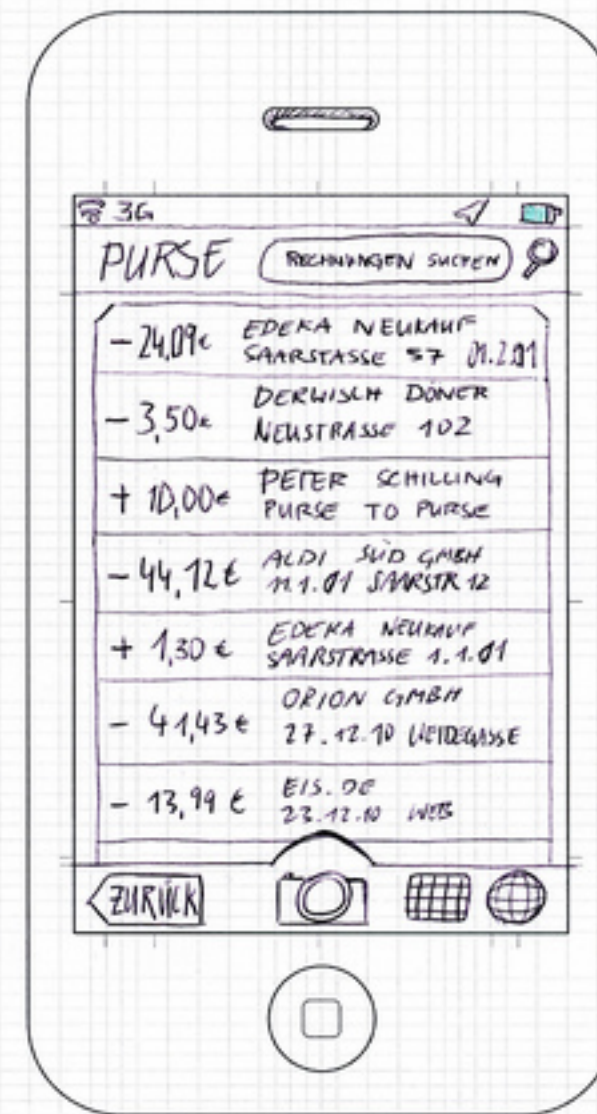 3G
PURSE RECHNUNGEN SUCHEN
- 24,09€ EDEKA NEUKAUF
SAARSTASSE 57 01.2.01
- 3,50€ DERWISCH DÖNER
NEUSTRASSE 102
+ 10,00€ PETER SCHILLING
PURSE TO PURSE
- 44,12€ ALDI SÜD GMBH
11.1.01 SAARSTR 12
+ 1,30€ EDEKA NEUKAUF
SAARSTRASSE 1.1.01
- 41,43€ ORION GMBH
27.12.10 WEIDEGASSE
- 13,99€ EIS.DE
23.12.10 WEB
ZURÜCK